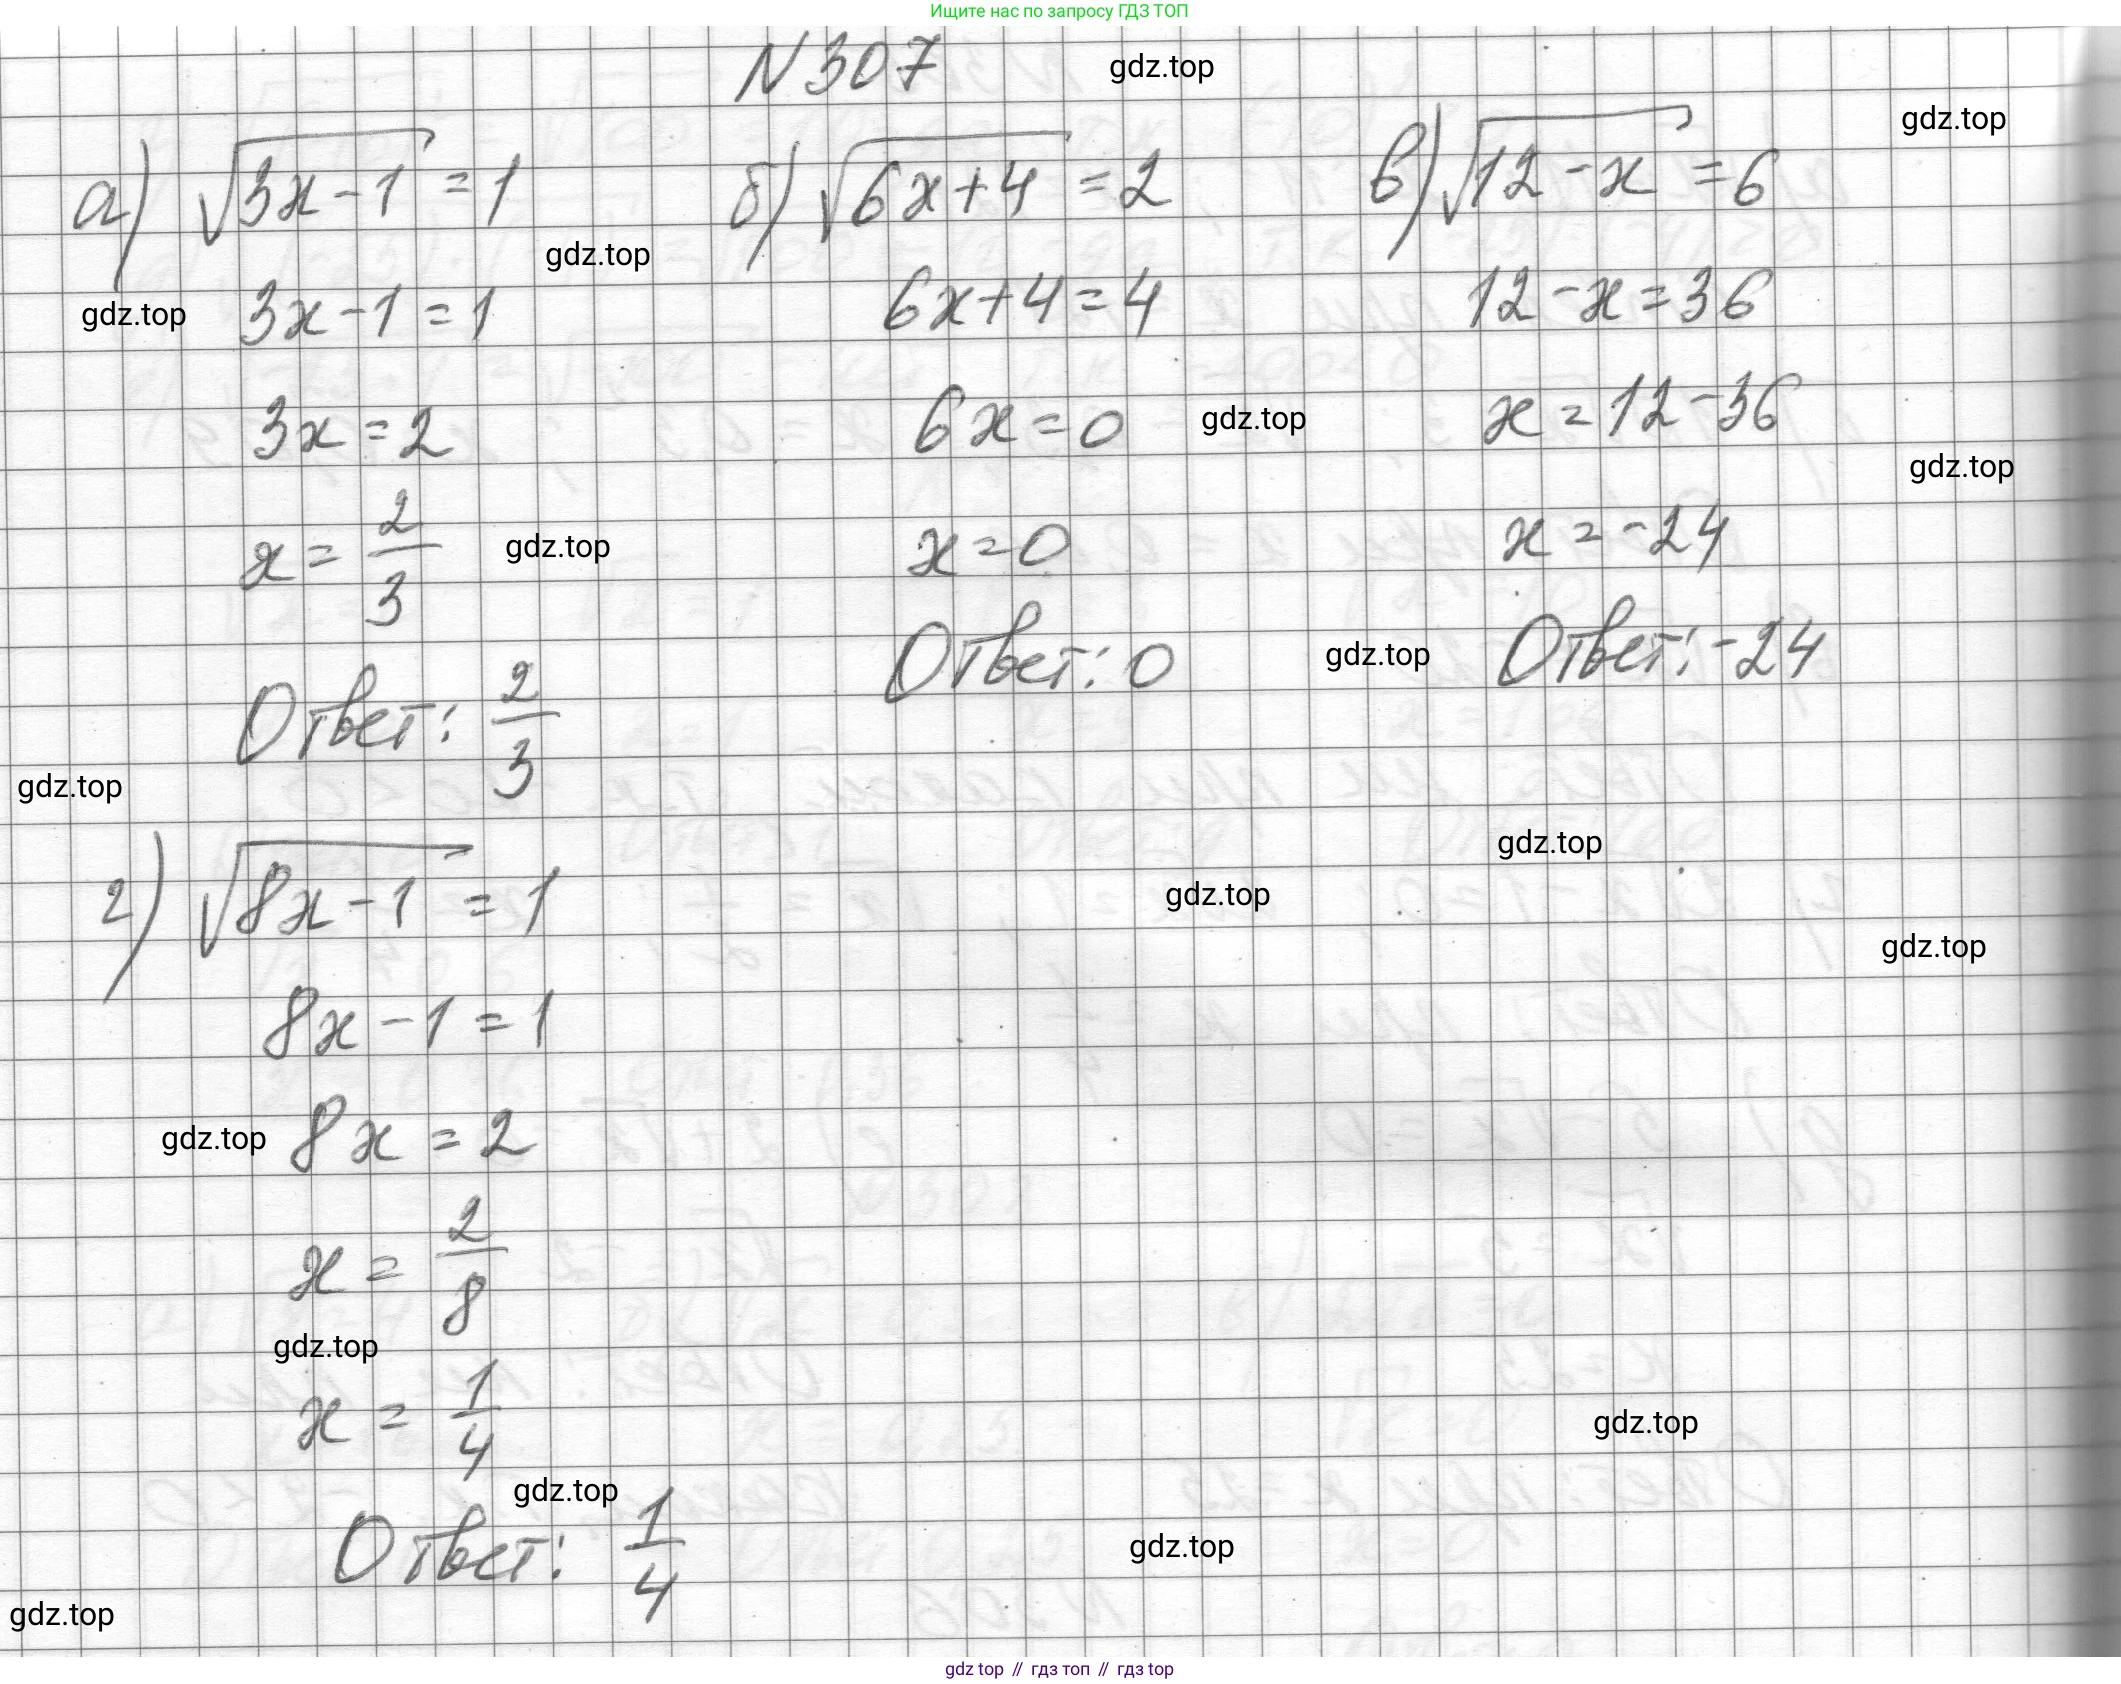 Ищите нас по запросу ГДЗ ТОП
N 307
gdz.top
gdz.top
а) √3x-1 = 1
gdz.top
gdz.top
3x-1 = 1
3x = 2
x = 2/3
gdz.top
Ответ: 2/3
gdz.top
б) √6x+4 = 2
6x+4 = 4
6x = 0
gdz.top
x = 0
Ответ: 0
gdz.top
в) √12-x = 6
12-x = 36
x = 12-36
gdz.top
x = -24
Ответ: -24
gdz.top
gdz.top
gdz.top
г) √8x-1 = 1
8x-1 = 1
gdz.top
8x = 2
x = 2/8
gdz.top
x = 1/4
gdz.top
gdz.top
Ответ: 1/4
gdz.top
gdz.top
gdz top // гдз топ // гдз top